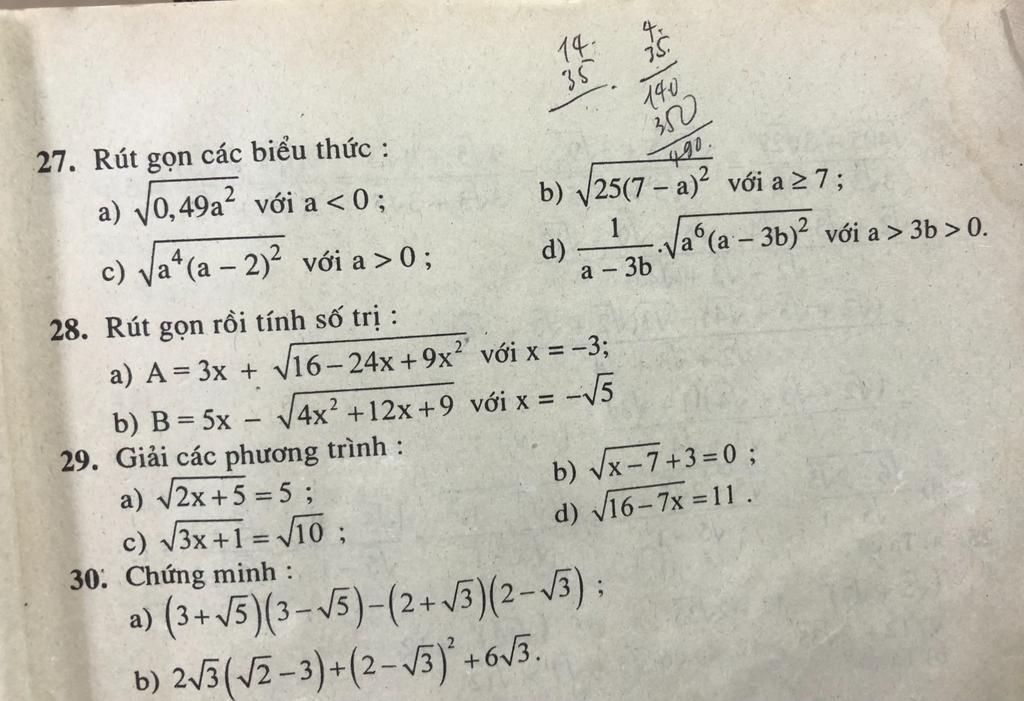 14.
35
4.
35.
140
350
490.
27. Rút gọn các biểu thức :
a) √0,49a² với a < 0 ;
b) √25(7 – a)² với a ≥ 7 ;
c) √a⁴(a – 2)² với a > 0 ;
d) 1/(a – 3b) .√a⁶(a – 3b)² với a > 3b > 0.
28. Rút gọn rồi tính số trị :
a) A = 3x + √16 – 24x + 9x² với x = –3;
b) B = 5x – √4x² +12x + 9 với x = –√5
29. Giải các phương trình :
a) √2x + 5 = 5 ;
b) √x – 7 + 3 = 0 ;
c) √3x + 1 = √10 ;
d) √16 – 7x = 11 .
30. Chứng minh :
a) (3 + √5)(3 – √5) – (2 + √3)(2 – √3) ;
b) 2√3(√2 – 3) + (2 – √3)² + 6√3.